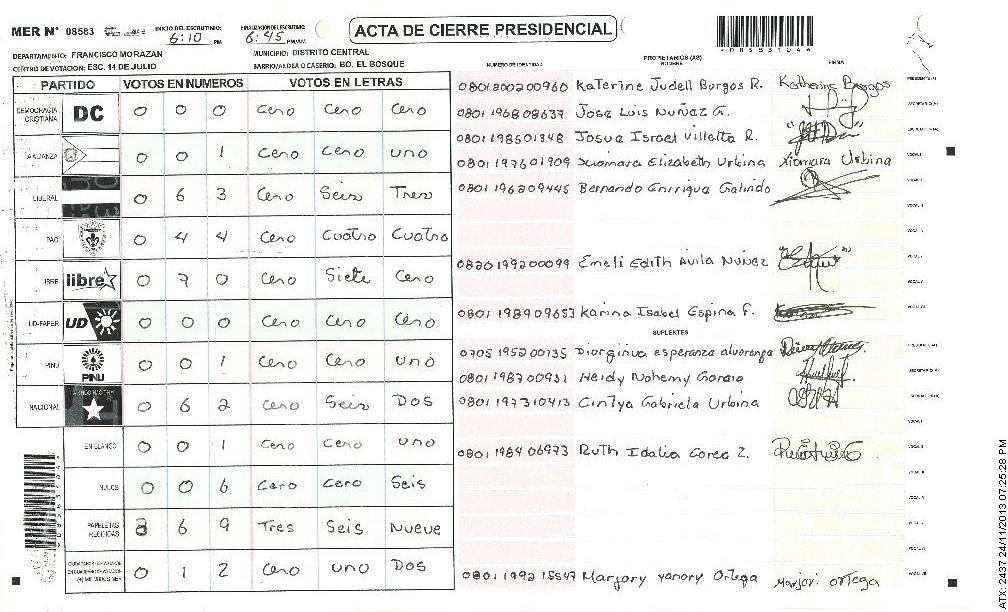 MER Nº 08583 INICIO DEL ESCRUTINIO: 6:10 PM FINALIZACION DEL ESCRUTINIO: 6:45 PM/AM ACTA DE CIERRE PRESIDENCIAL
DEPARTAMENTO: FRANCISCO MORAZAN MUNICIPIO: DISTRITO CENTRAL
CENTRO DE VOTACION: ESC. 14 DE JULIO BARRIO/ALDEA O CASERIO: BO. EL BOSQUE
NUMERO DE IDENTIDAD PROPIETARIOS (AS) NOMBRE FIRMA
PARTIDO VOTOS EN NUMEROS VOTOS EN LETRAS
DEMOCRACIA CRISTIANA DC 0 0 0 Cero Cero Cero
ALIANZA 0 0 1 Cero Cero uno
LIBERAL 0 6 3 Cero Seis Tres
PAC 0 4 4 Cero Cuatro Cuatro
LIBRE libre 0 7 0 Cero Siete Cero
UD-FAPER UD 0 0 0 Cero Cero Cero
PINU PINU 0 0 1 Cero Cero uno
NACIONAL 0 6 2 Cero Seis Dos
EN BLANCO 0 0 1 Cero Cero uno
NULOS 0 0 6 Cero Cero Seis
PAPELETAS RECIBIDAS 3 6 9 Tres Seis Nueve
0 1 2 Cero uno Dos
0801200200960 Katerine Judell Burgos R. Katherine Burgos
0801196808637 Jose Luis Nuñez G.
0801198501348 Josue Israel Villetta R.
0801197601909 Xiomara Elizabeth Urbina Xiomara Urbina
0801196209445 Bernando Enrrique Galindo
0820199200099 Emeli Edith Avila Nuñez
0801198909653 Karina Isabel Espina F.
SUPLENTES
0705195200135 Diorginua esperanza alvarenga
0801198700951 Heidy Nohemy Garcia
0801197310413 Cintya Gabriela Urbina
0801198406973 Ruth Idalia Gorea Z.
0801199215547 Marjory Yanory Ortega Marjori ortega
ATX, 2437 24/11/2013 07:25:28 PM